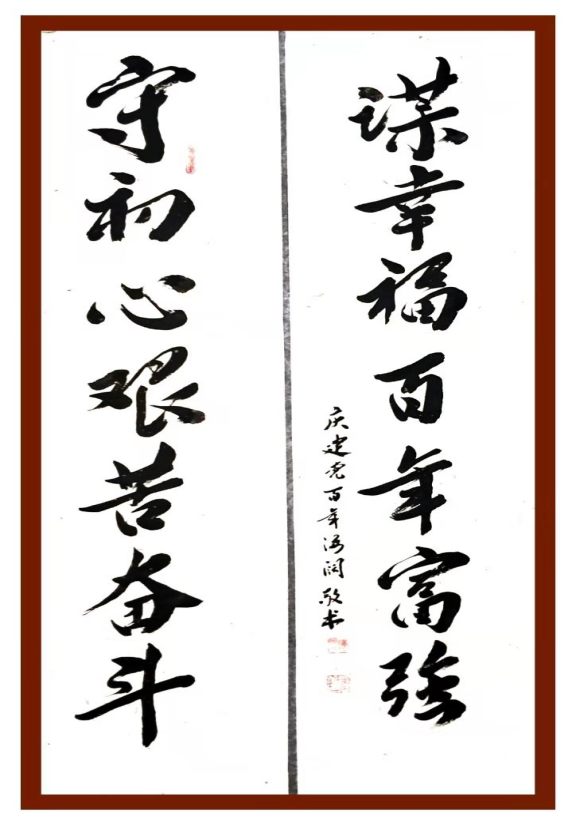 守初心艰苦奋斗
谋幸福百年富强
庆建党百年 敬书